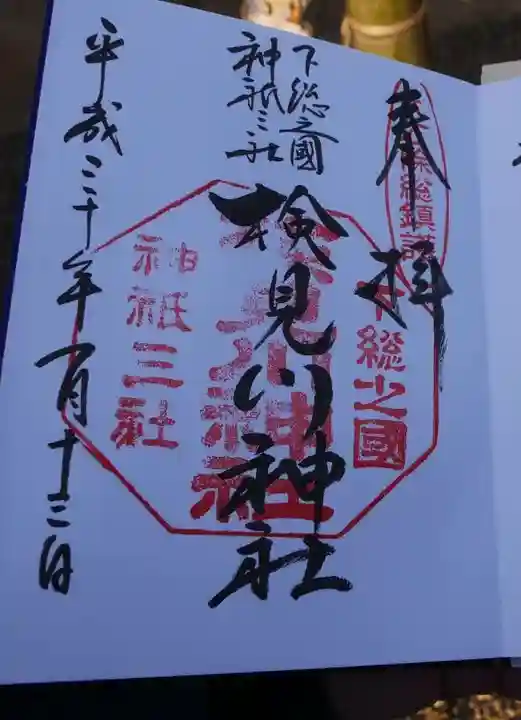 奉拝
除総鎮護
下総之國
下総之國
神祇三社
検見川神社
検見川神社
神祇三社
平成三十年一月十三日